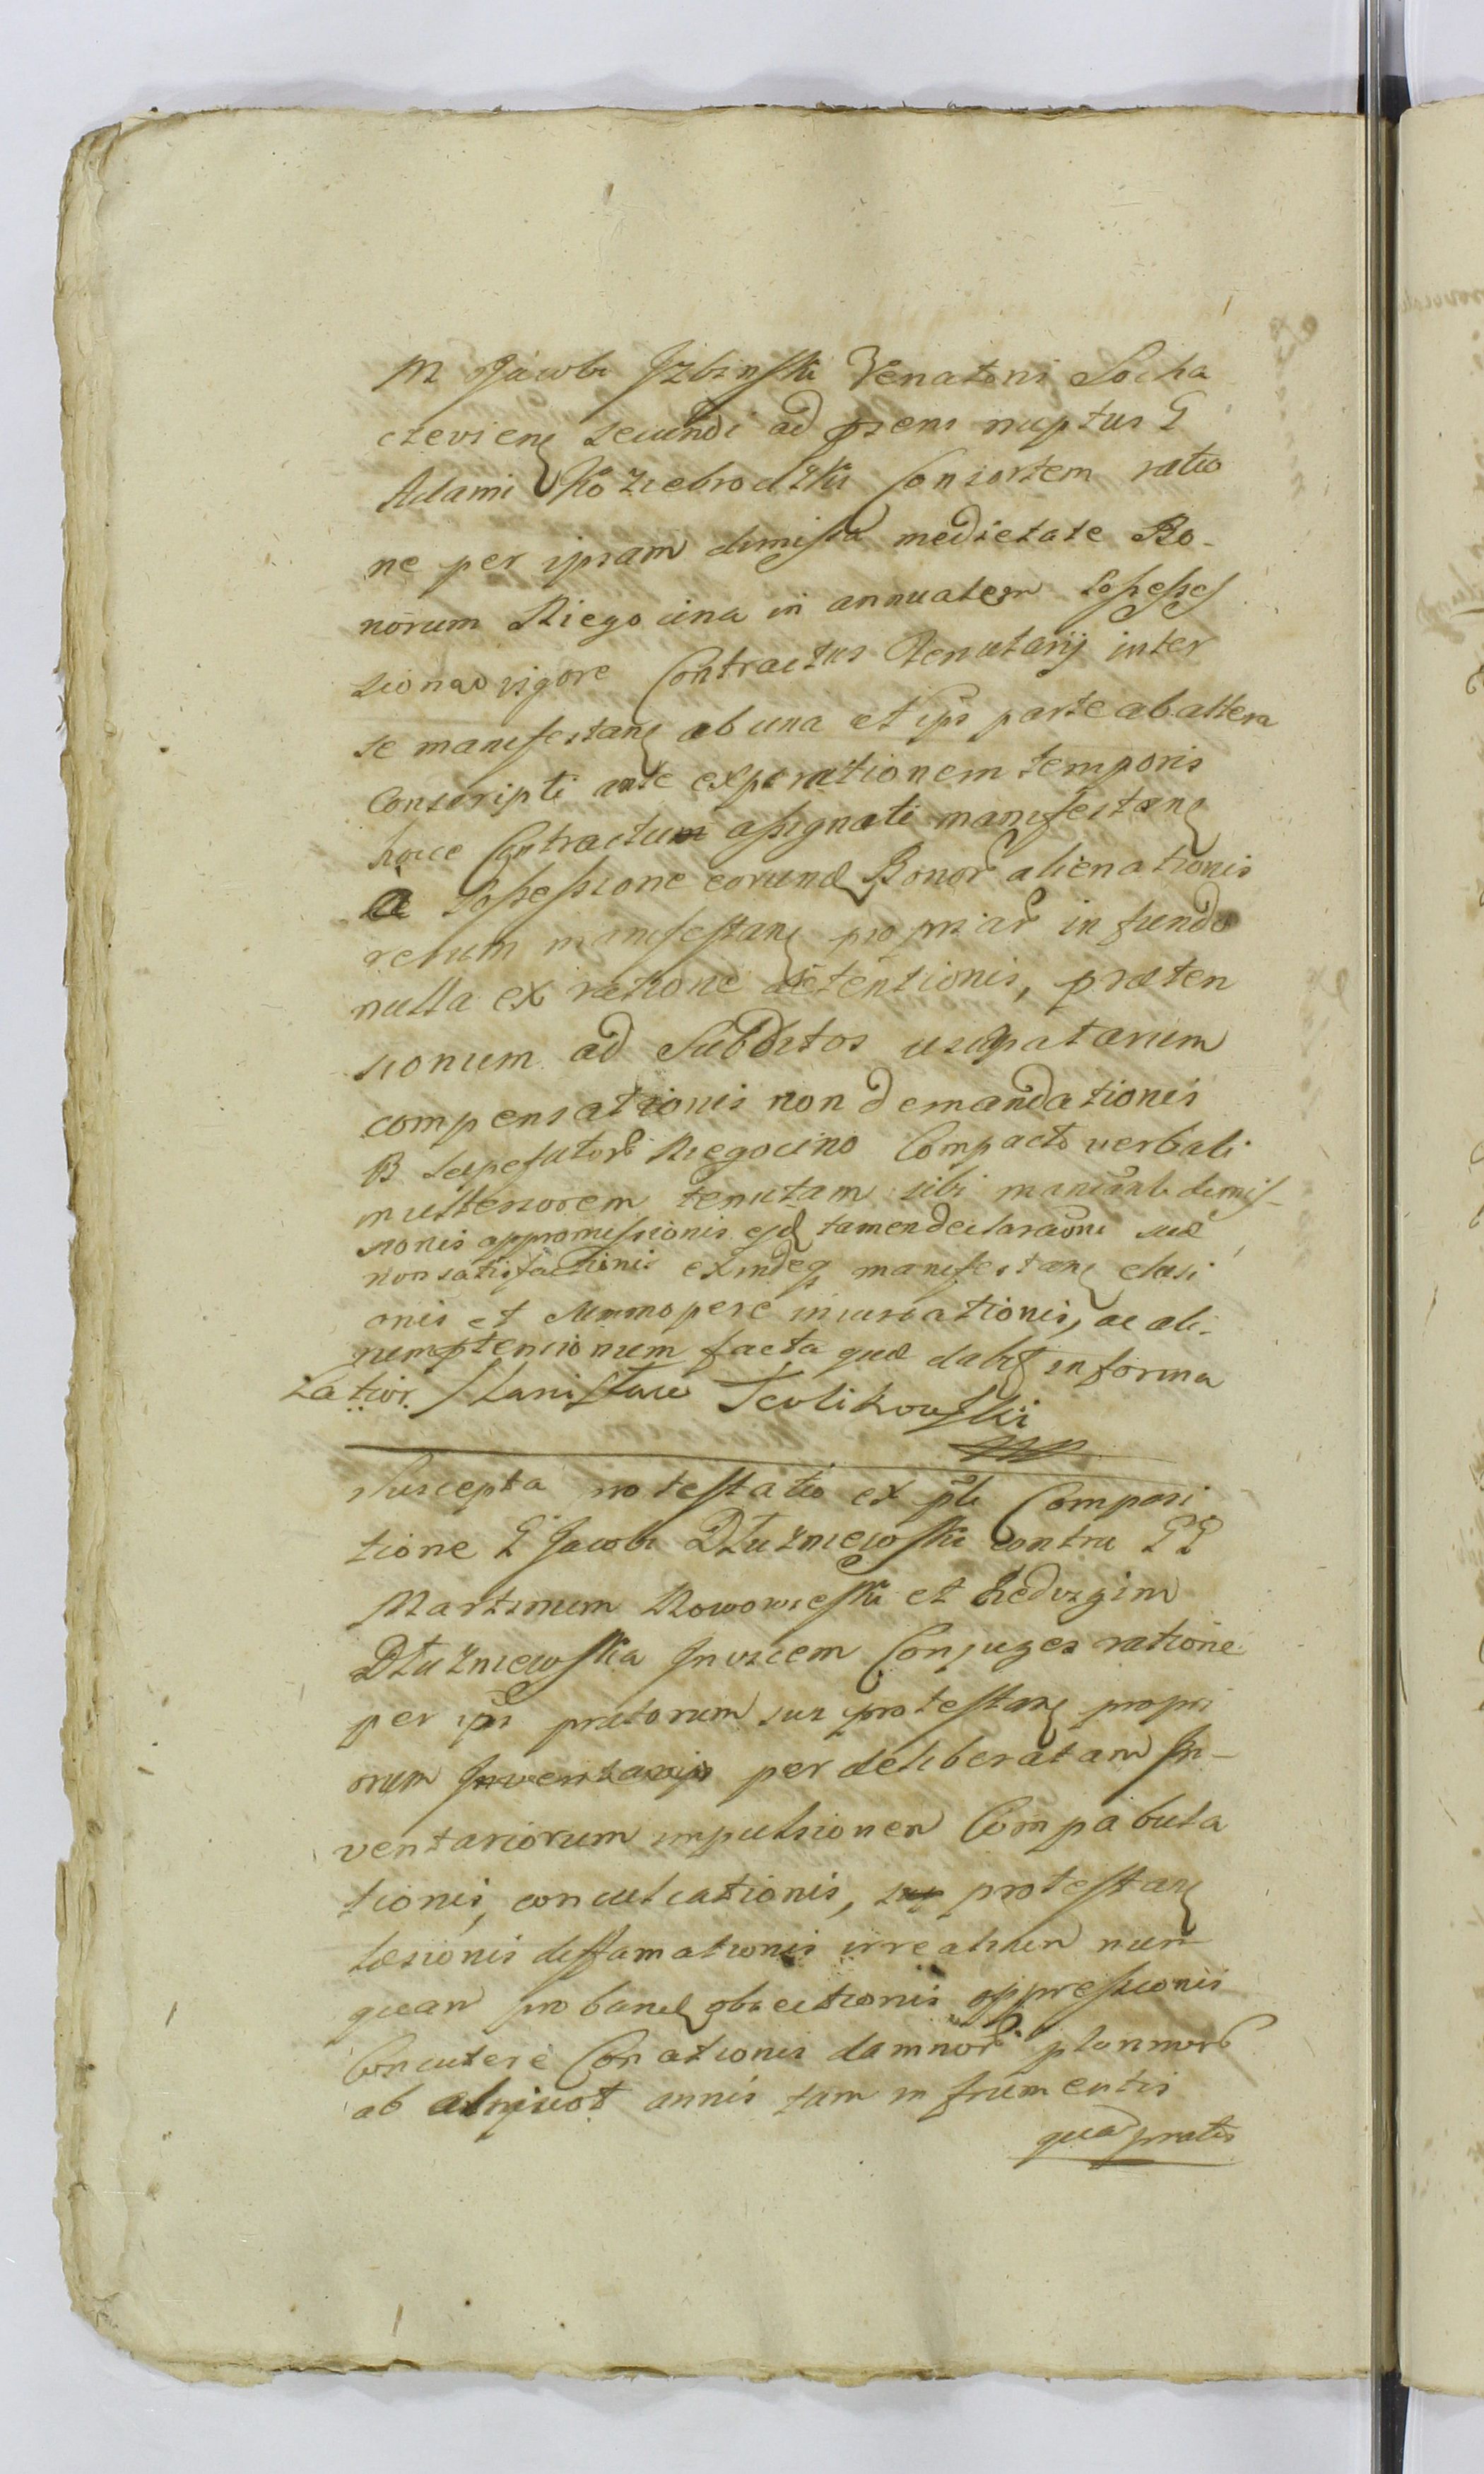 M Jacobi Jzbinski Venatoris Socha
czevien secundi ad prens nuptus G
Adami Kozuebrodzki Consortem ratio
ne per ipsam dimissa medietate Bo-
norum Niegocina in annualem Possess
sionao vigore Contractus Tenutarij inter
se manifestan ab una et ips parte ab altera
Conscripti ante expirationem temporis
hocce Contractum assignati manifestan
a Possessione eorund Bonor alienationis
rerum manifestan propriar in fundo
nulla ex ratione detentionis, præten
sionum ad Subditos usurpatarum
compensationis non demandationis
B Niegocino Compacto verbali
in ulteriorem tenutam sibi dimis-
sionis appromissionis ejd tamen declaraoni suæ
non satisfactionis exindeq manifestan elusi
onis et Summopere incusationis, ac ali-
rum ptensionum facta quæ dabit in forma
Lator. Stanislaw Teolikowski
Suscepta protestatio ex pti Composi
tione G Jacobi Dłuzniewski contra GG
Martinum Nowowieski et Hedvigim
Dłuzniewska Jnvicem Conjuges ratione
per ips pratorum sui protestan propri
orum Inventarijs per deliberatam In-
ventariorum impulsionem Compabula
tionis, conculcationis, protestan
læsionis deffamationis irrealium nun
quam proband obiectionis oppressionis
Concutere Conationis damnor plurimor
ab aliquot annis tam in frumentis
qua pratis